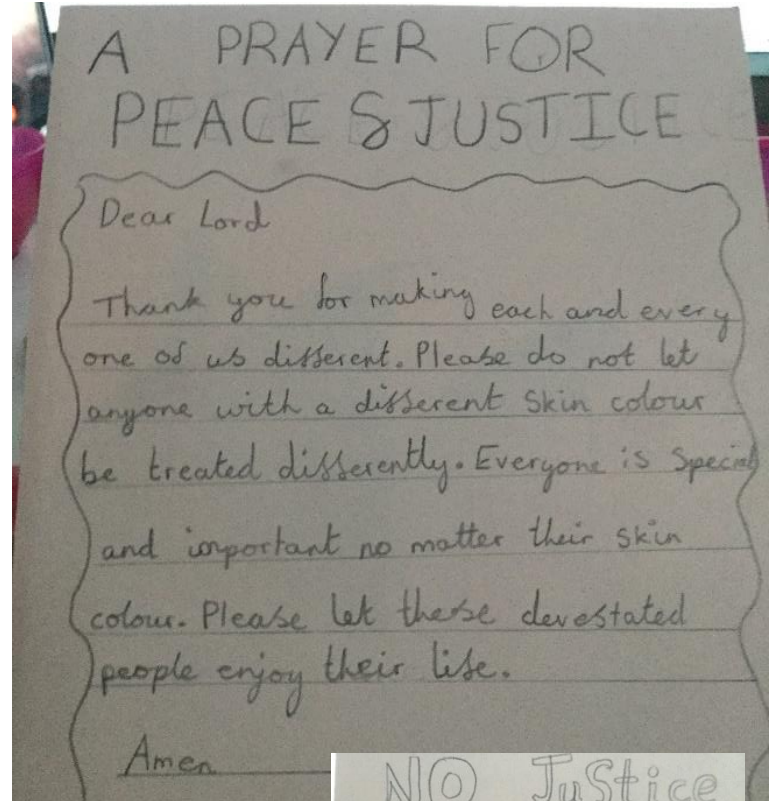 A PRAYER FOR
PEACE & JUSTICE
Dear Lord
Thank you for making each and every
one of us different. Please do not let
anyone with a different skin colour
be treated differently. Everyone is special
and important no matter their skin
colour. Please let these devestated
people enjoy their life.
Amen
NO JuStice